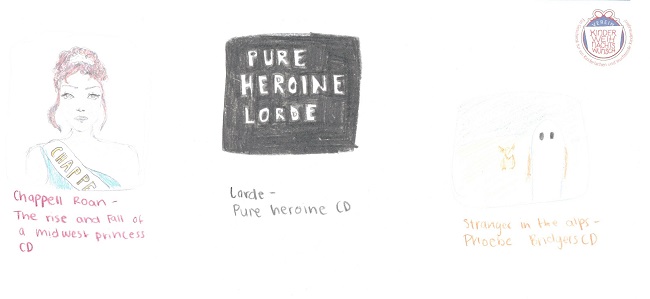 VEREIN
KINDER
WEIH
NACHTS
WUNSCH
PURE
HEROINE
LORDE
CHAPPE
Chappell Roan -
The rise and fall of
a midwest princess
CD
Lorde -
Pure heroine CD
Stranger in the alps -
Phoebe Bridgers CD